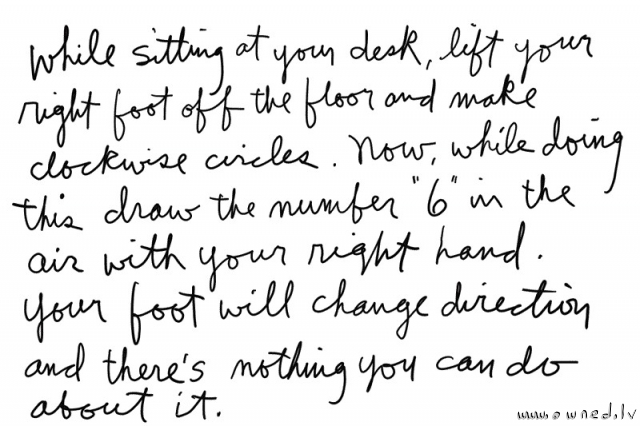 while sitting at your desk, lift your
right foot off the floor and make
clockwise circles. Now, while doing
this draw the number "6" in the
air with your right hand.
your foot will change direction
and there's nothing you can do
about it.
www.owned.lv